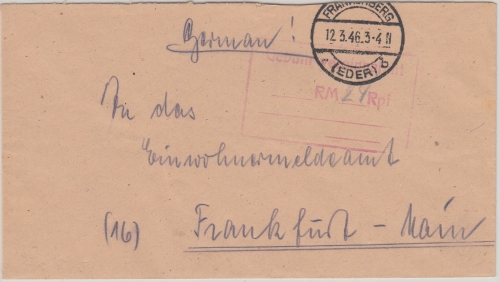 German!
FRANKENBERG
12.3.46.3-4 N
(EDER)
RM 24 Rpf
An das
Einwohnermeldeamt
(16) Frankfurt - Main